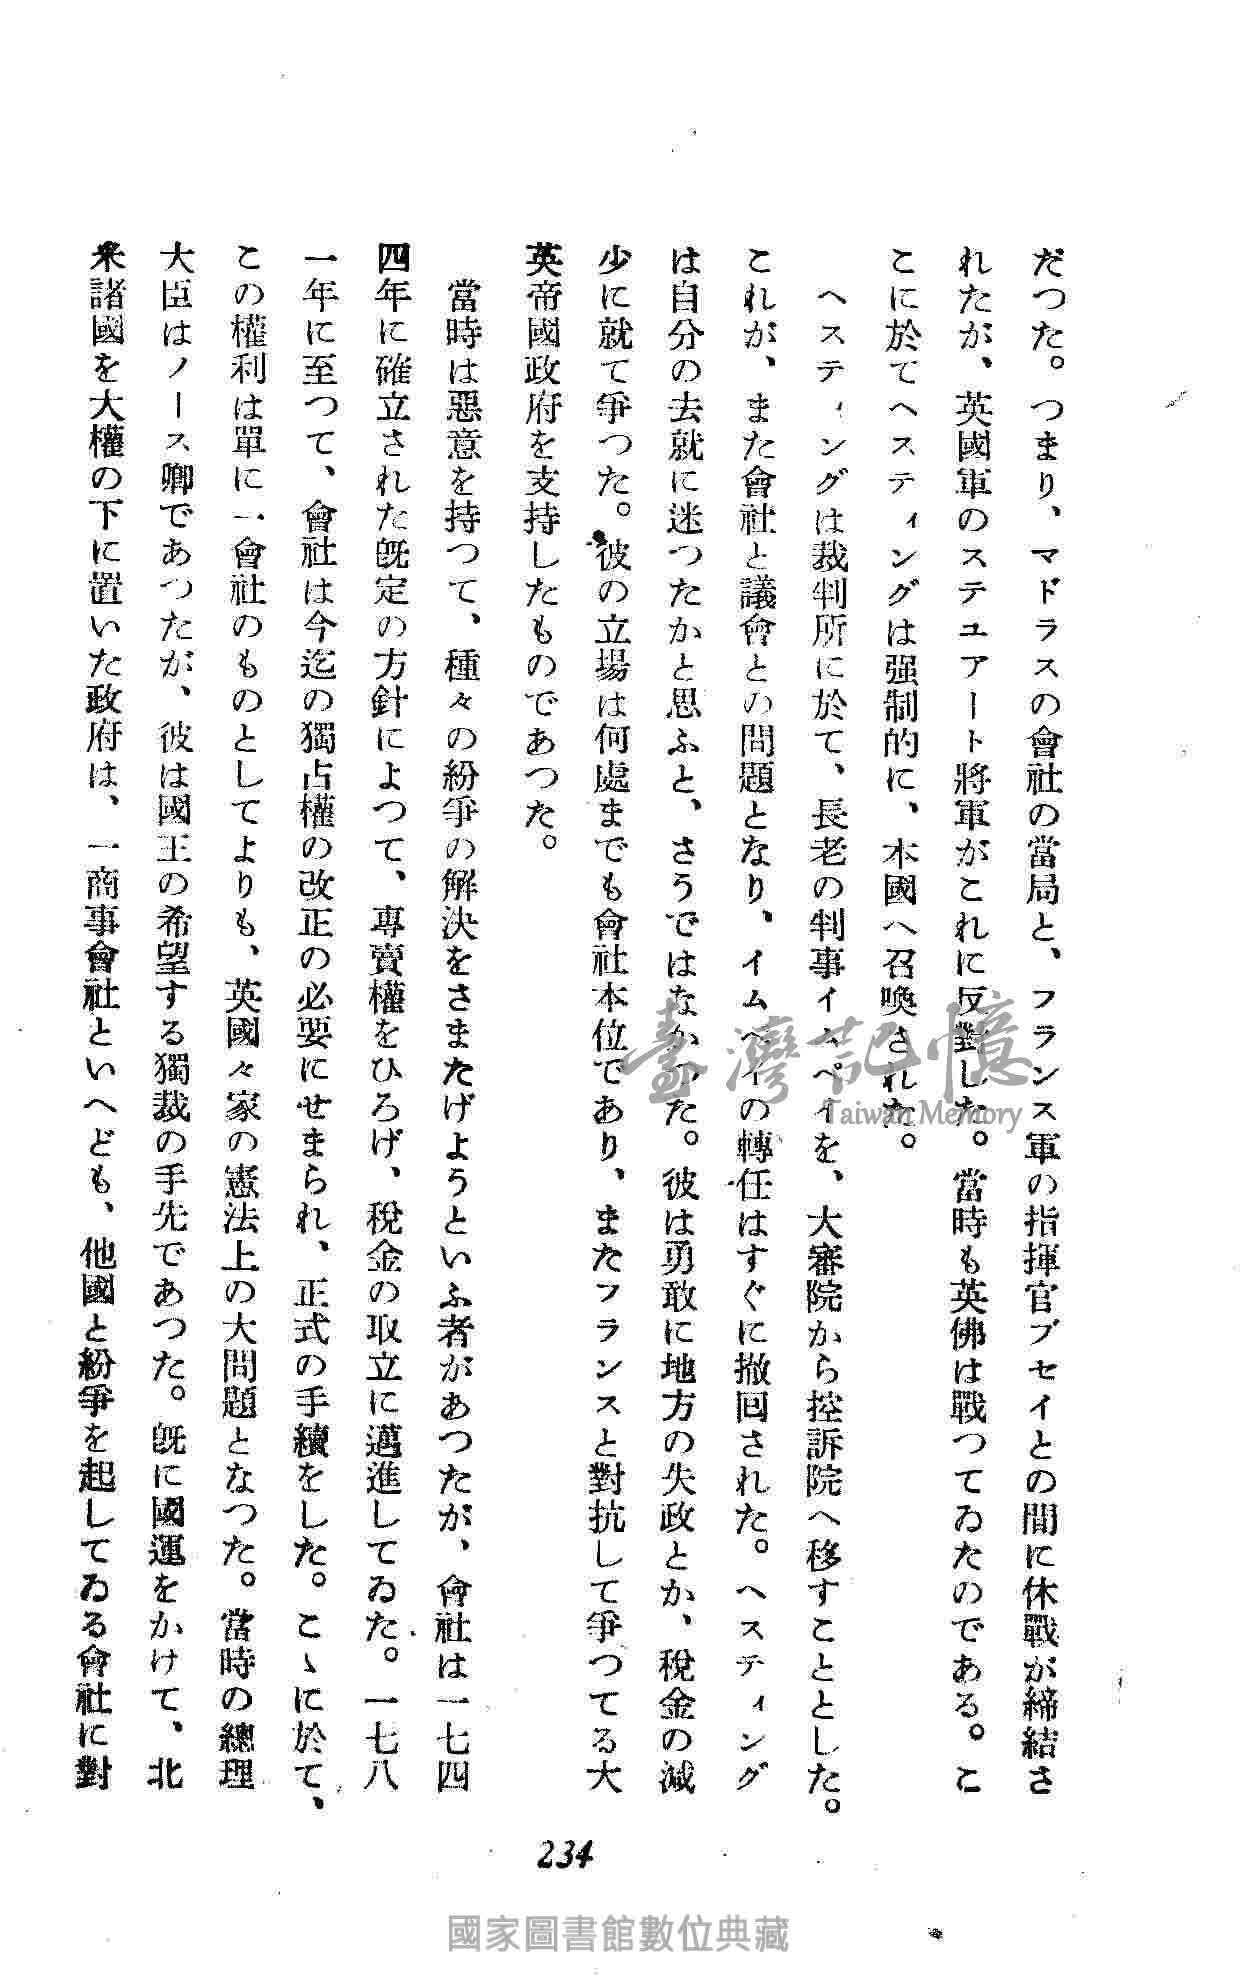 だつた。つまり、マドラスの會社の當局と、フランス軍の指揮官ブセイとの間に休戰が締結さ
れたが、英國軍のステユアート將軍がこれに反對した。當時も英佛は戰つてゐたのである。こ
こに於てヘスティングは强制的に、本國へ召喚された。
ヘスティングは裁判所に於て、長老の判事イムペイを、大審院から控訴院へ移すこととした。
これが、また會社と議會との問題となり、イムペイの轉任はすぐに撤回された。ヘスティング
は自分の去就に迷つたかと思ふと、さうではなかつた。彼は勇敢に地方の失政とか、稅金の減
少に就て爭つた。彼の立場は何處までも會社本位であり、またフランスと對抗して爭つてる大
英帝國政府を支持したものであつた。
當時は惡意を持つて、種々の紛爭の解決をさまたげようといふ者があつたが、會社は一七四
四年に確立された旣定の方針によつて、專賣權をひろげ、稅金の取立に邁進してゐた。一七八
一年に至つて、會社は今迄の獨占權の改正の必要にせまられ、正式の手續をした。こゝに於て、
この權利は單に一會社のものとしてよりも、英國々家の憲法上の大問題となつた。當時の總理
大臣はノース卿であつたが、彼は國王の希望する獨裁の手先であつた。旣に國運をかけて、北
米諸國を大權の下に置いた政府は、一商事會社といへども、他國と紛爭を起してゐる會社に對
234
臺灣記憶
Taiwan Memory
國家圖書館數位典藏